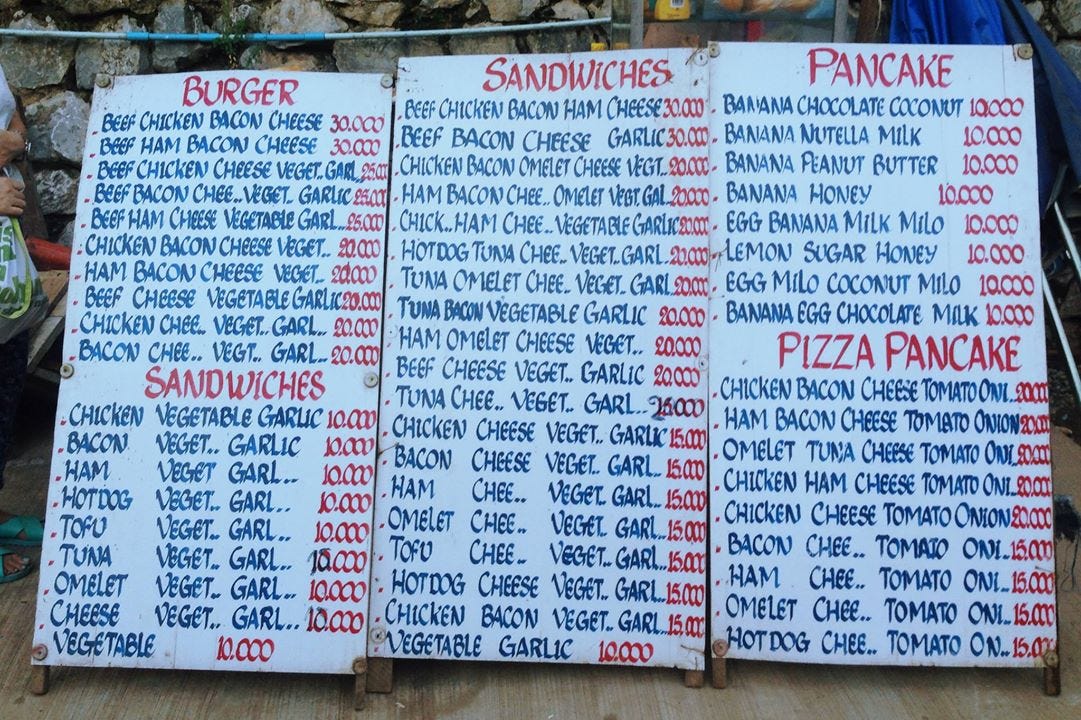 BURGER
BEEF CHICKEN BACON CHEESE 30.000
BEEF HAM BACON CHEESE 30.000
BEEF CHICKEN CHEESE VEGET.. GARL.. 25.000
BEEF BACON CHEE.. VEGET.. GARLIC 25.000
BEEF HAM CHEESE VEGETABLE GARL... 25.000
CHICKEN BACON CHEESE VEGET.. 20.000
HAM BACON CHEESE VEGET.. 20.000
BEEF CHEESE VEGETABLE GARLIC 20.000
CHICKEN CHEE.. VEGET.. GARL.. 20.000
BACON CHEE.. VEGT.. GARL... 20.000
SANDWICHES
CHICKEN VEGETABLE GARLIC 10.000
BACON VEGET.. GARLIC 10.000
HAM VEGET GARL... 10.000
HOTDOG VEGET.. GARL... 10.000
TOFU VEGET.. GARL.. 10.000
TUNA VEGET.. GARL.. 15.000
OMELET VEGET.. GARL.. 10.000
CHEESE VEGET.. GARL.. 10.000
VEGETABLE 10.000
SANDWICHES
BEEF CHICKEN BACON HAM CHEESE 30.000
BEEF BACON CHEESE GARLIC 30.000
CHICKEN BACON OMELET CHEESE VEGT.. 20.000
HAM BACON CHEE.. OMELET VEGT. GAL.. 20.000
CHICK... HAM CHEE.. VEGETABLE GARLIC 20.000
HOTDOG TUNA CHEE.. VEGET.. GARL.. 20.000
TUNA OMELET CHEE.. VEGET.. GARL.. 20.000
TUNA BACON VEGETABLE GARLIC 20.000
HAM OMELET CHEESE VEGET.. 20.000
BEEF CHEESE VEGET.. GARLIC 20.000
TUNA CHEE.. VEGET.. GARL... 25.000
CHICKEN CHEESE VEGET.. GARLIC 15.000
BACON CHEESE VEGET.. GARL.. 15.000
HAM CHEE.. VEGET.. GARL.. 15.000
OMELET CHEE.. VEGET.. GARL.. 15.000
TOFU CHEE.. VEGET.. GARL.. 15.000
HOTDOG CHEESE VEGET.. GARL.. 15.000
CHICKEN BACON VEGET.. GARL.. 15.000
VEGETABLE GARLIC 10.000
PANCAKE
BANANA CHOCOLATE COCONUT 10.000
BANANA NUTELLA MILK 10.000
BANANA PEANUT BUTTER 10.000
BANANA HONEY 10.000
EGG BANANA MILK MILO 10.000
LEMON SUGAR HONEY 10.000
EGG MILO COCONUT MILO 10.000
BANANA EGG CHOCOLATE MILK 10.000
PIZZA PANCAKE
CHICKEN BACON CHEESE TOMATO ONI.. 20.000
HAM BACON CHEESE TOMATO ONION 20.000
OMELET TUNA CHEESE TOMATO ONI.. 20.000
CHICKEN HAM CHEESE TOMATO ONI.. 20.000
CHICKEN CHEESE TOMATO ONION 20.000
BACON CHEE.. TOMATO ONI.. 15.000
HAM CHEE.. TOMATO ONI.. 15.000
OMELET CHEE.. TOMATO ONI.. 15.000
HOTDOG CHEE.. TOMATO ON.. 15.000